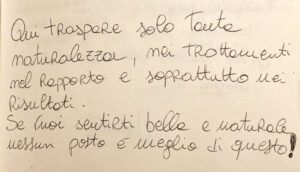 Qui traspare solo tanta
naturalezza, nei trattamenti
nel rapporto e soprattutto nei
risultati.
Se vuoi sentirti bella e naturale
nessun posto è meglio di questo!